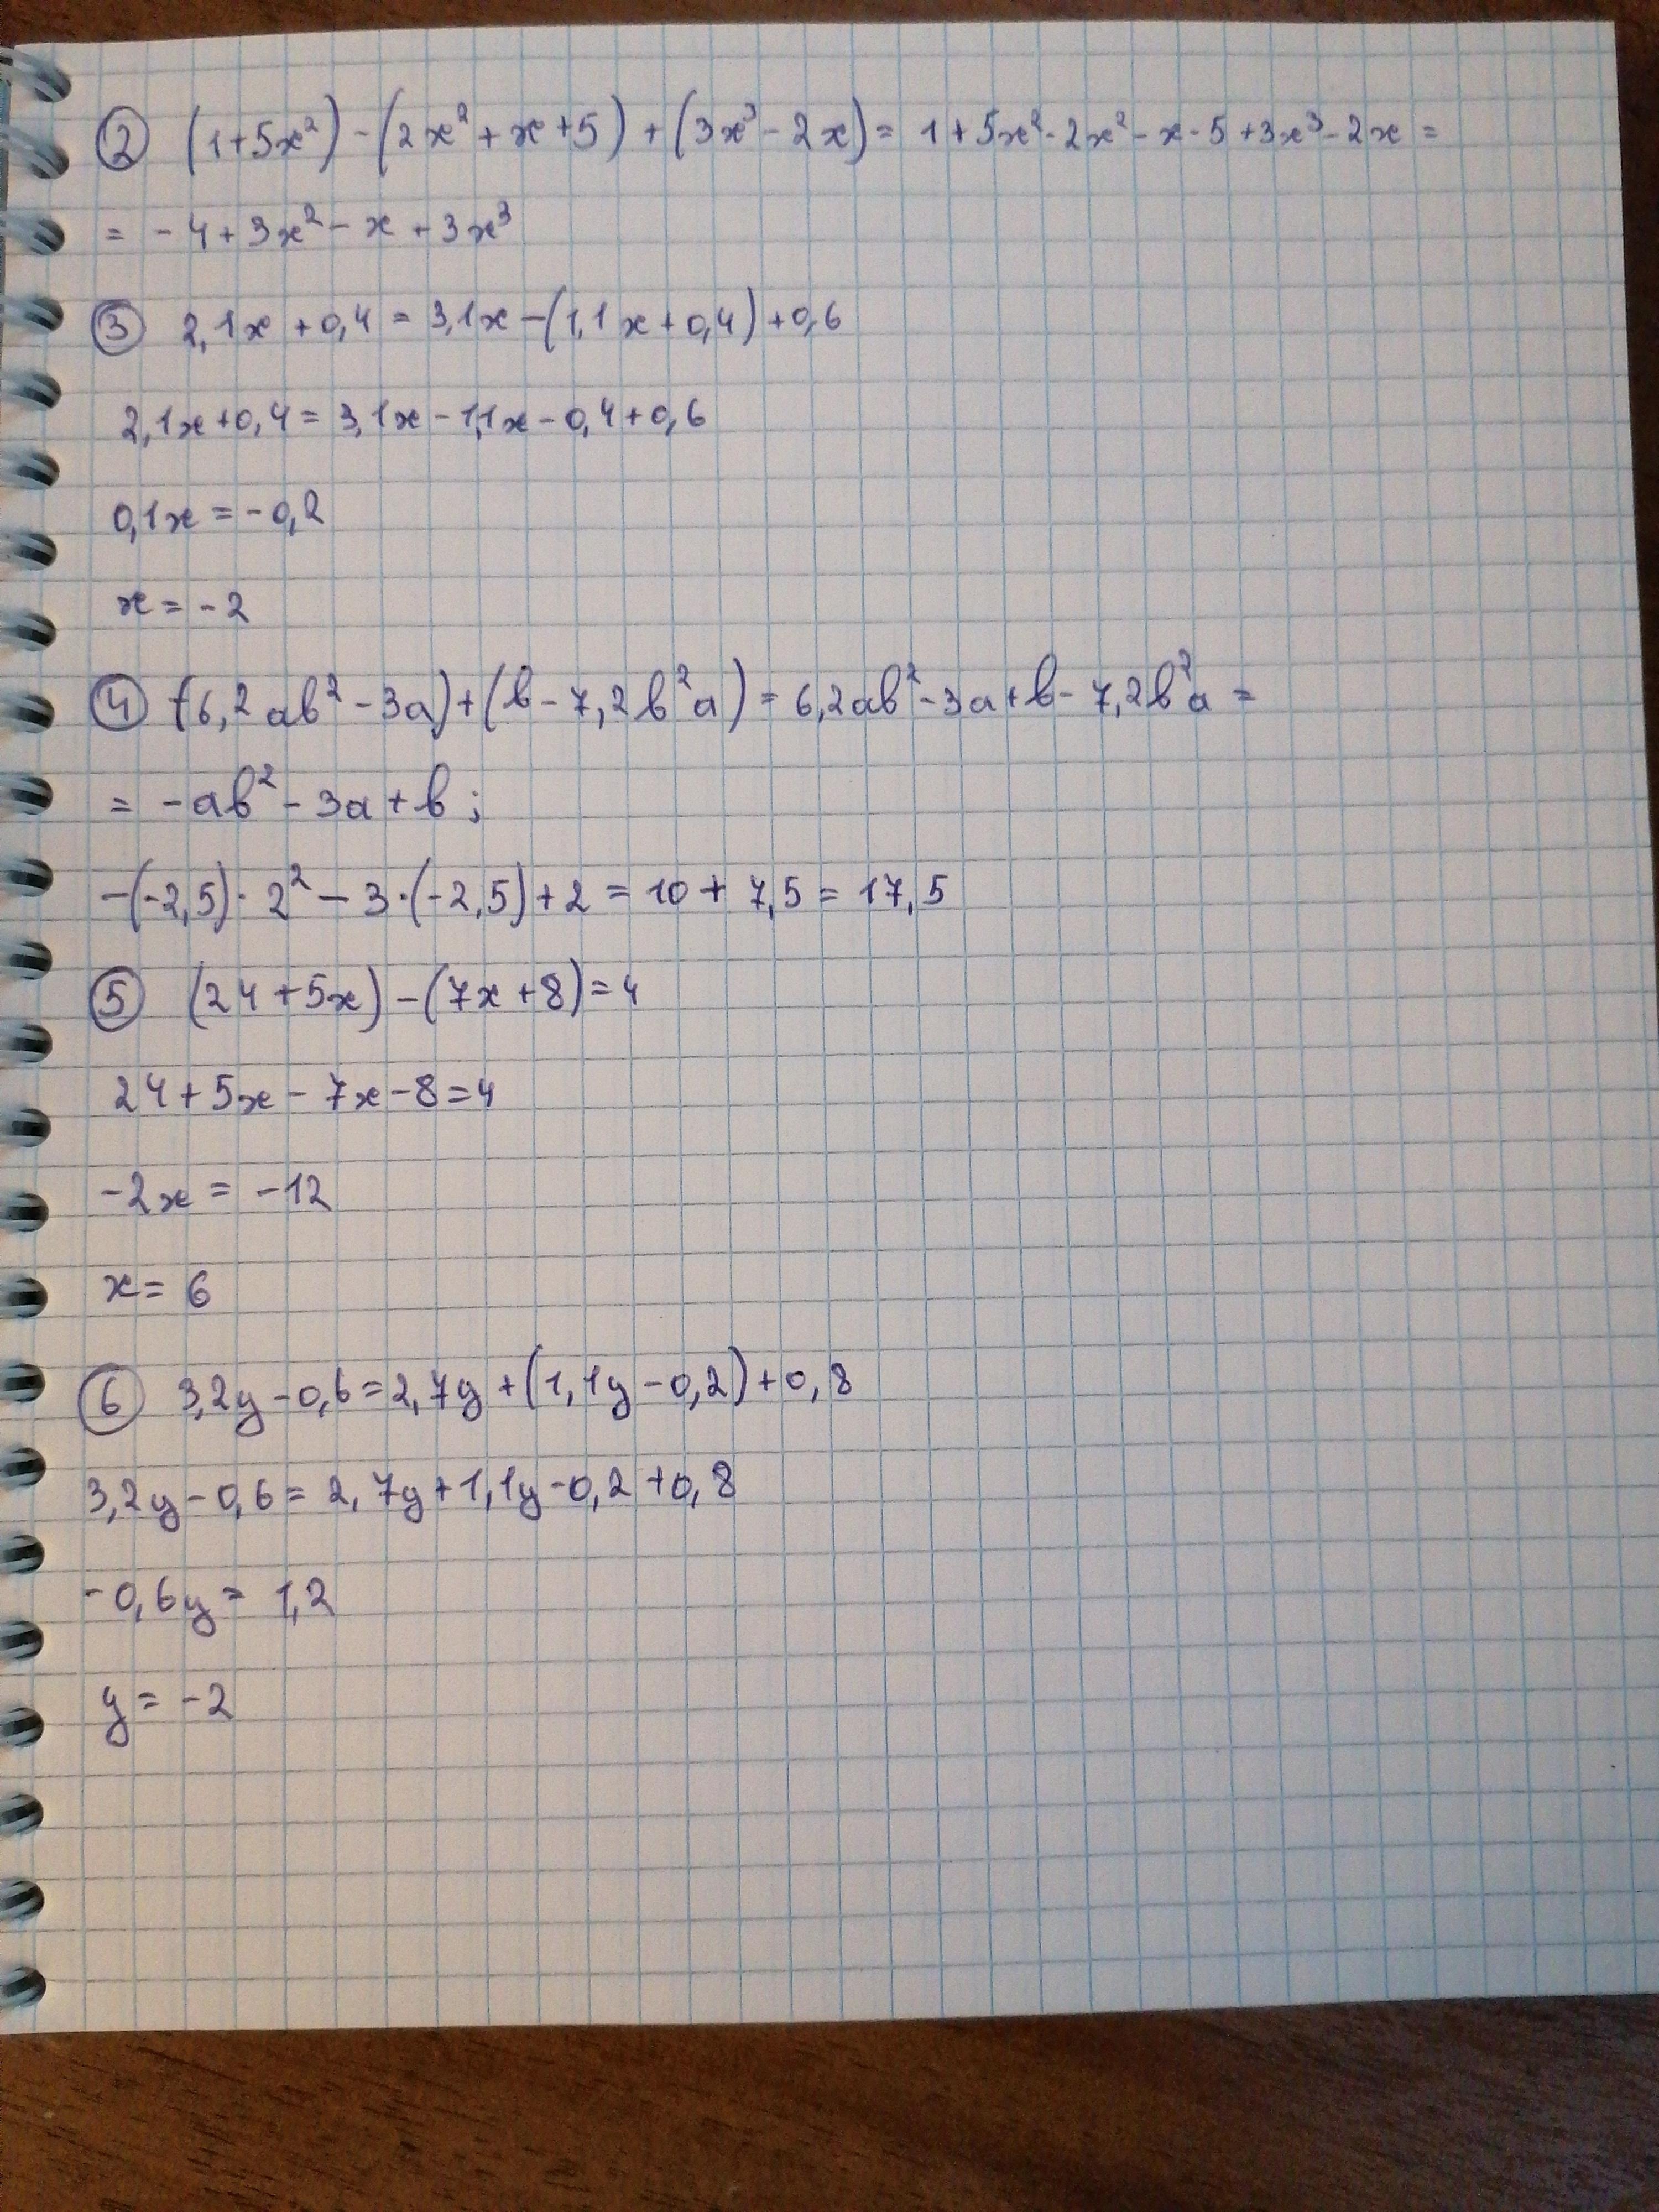 ② (1+5x²)-(2x²+x+5)+(3x³-2x)= 1+5x²-2x²-x-5+3x³-2x=
= -4+3x²-x+3x³
③ 2,1x+0,4=3,1x-(1,1x+0,4)+0,6
2,1x+0,4=3,1x-1,1x-0,4+0,6
0,1x=-0,2
x=-2
④ (6,2ab²-3a)+(b-7,2b²a)=6,2ab²-3a+b-7,2b²a=
= -ab²-3a+b;
-(-2,5)·2²-3·(-2,5)+2=10+7,5=17,5
⑤ (24+5x)-(7x+8)=4
24+5x-7x-8=4
-2x=-12
x=6
⑥ 3,2y-0,6=2,7y+(1,1y-0,2)+0,8
3,2y-0,6=2,7y+1,1y-0,2+0,8
-0,6y=1,2
y=-2